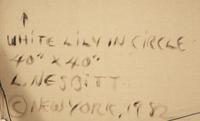 WHITE LILY IN CIRCLE
40" X 40"
L. NESBITT
© NEW YORK, 1982